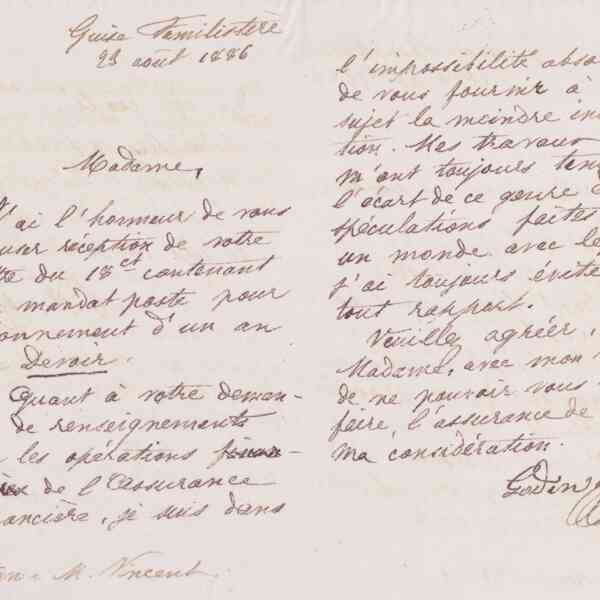 Guise Familistère
23 août 1886
Madame,
J'ai l'honneur de vous
user réception de votre
du 18 ct contenant
mandat poste pour
onnement d'un an
Devoir.
Quant à votre deman-
de renseignements
les opérations finan-
de l'Assurance
ancière, je suis dans
M. Vincent.
l'impossibilité abso
de vous fournir à
sujet la moindre in
tion. Mes travaux
m'ont toujours ten
l'écart de ce genre
spéculations faites
un monde avec le
j'ai toujours évité
tout rapport.
Veuillez agréer,
Madame, avec mon
de ne pouvoir vous
faire, l'assurance de
ma considération.
Godin